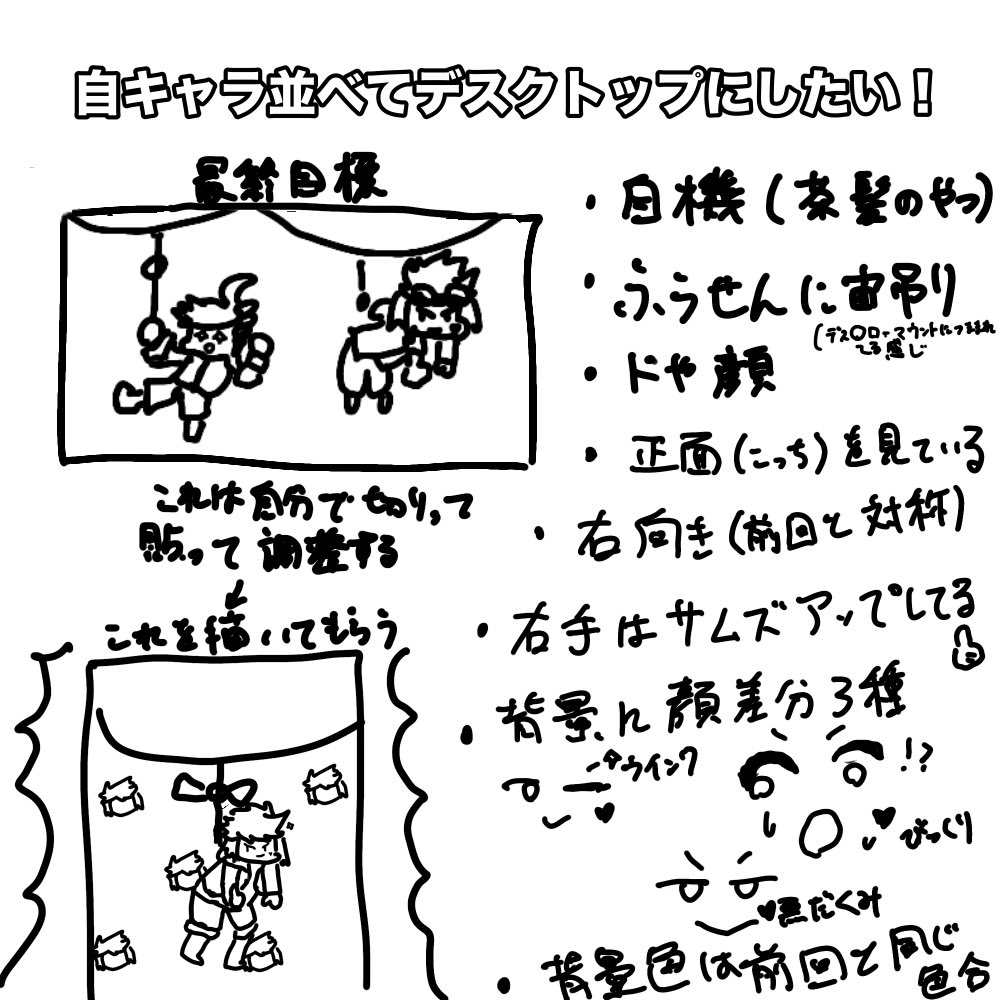 自キャラ並べてデスクトップにしたい！
最終目標
・自機(茶髪のやつ)
・ふうせんに宙吊り
(デス〇ローマウントにつままれ
てる感じ
・ドヤ顔
・正面(こっち)を見ている
・右向き(前回と対称)
・右手はサムズアップしてる
・背景に顔差分3種
ウインク
!?
びっくり
悪だくみ
・背景色は前回と同じ
色合
これは自分で切りって
貼って調整する
↓
これを描いてもらう